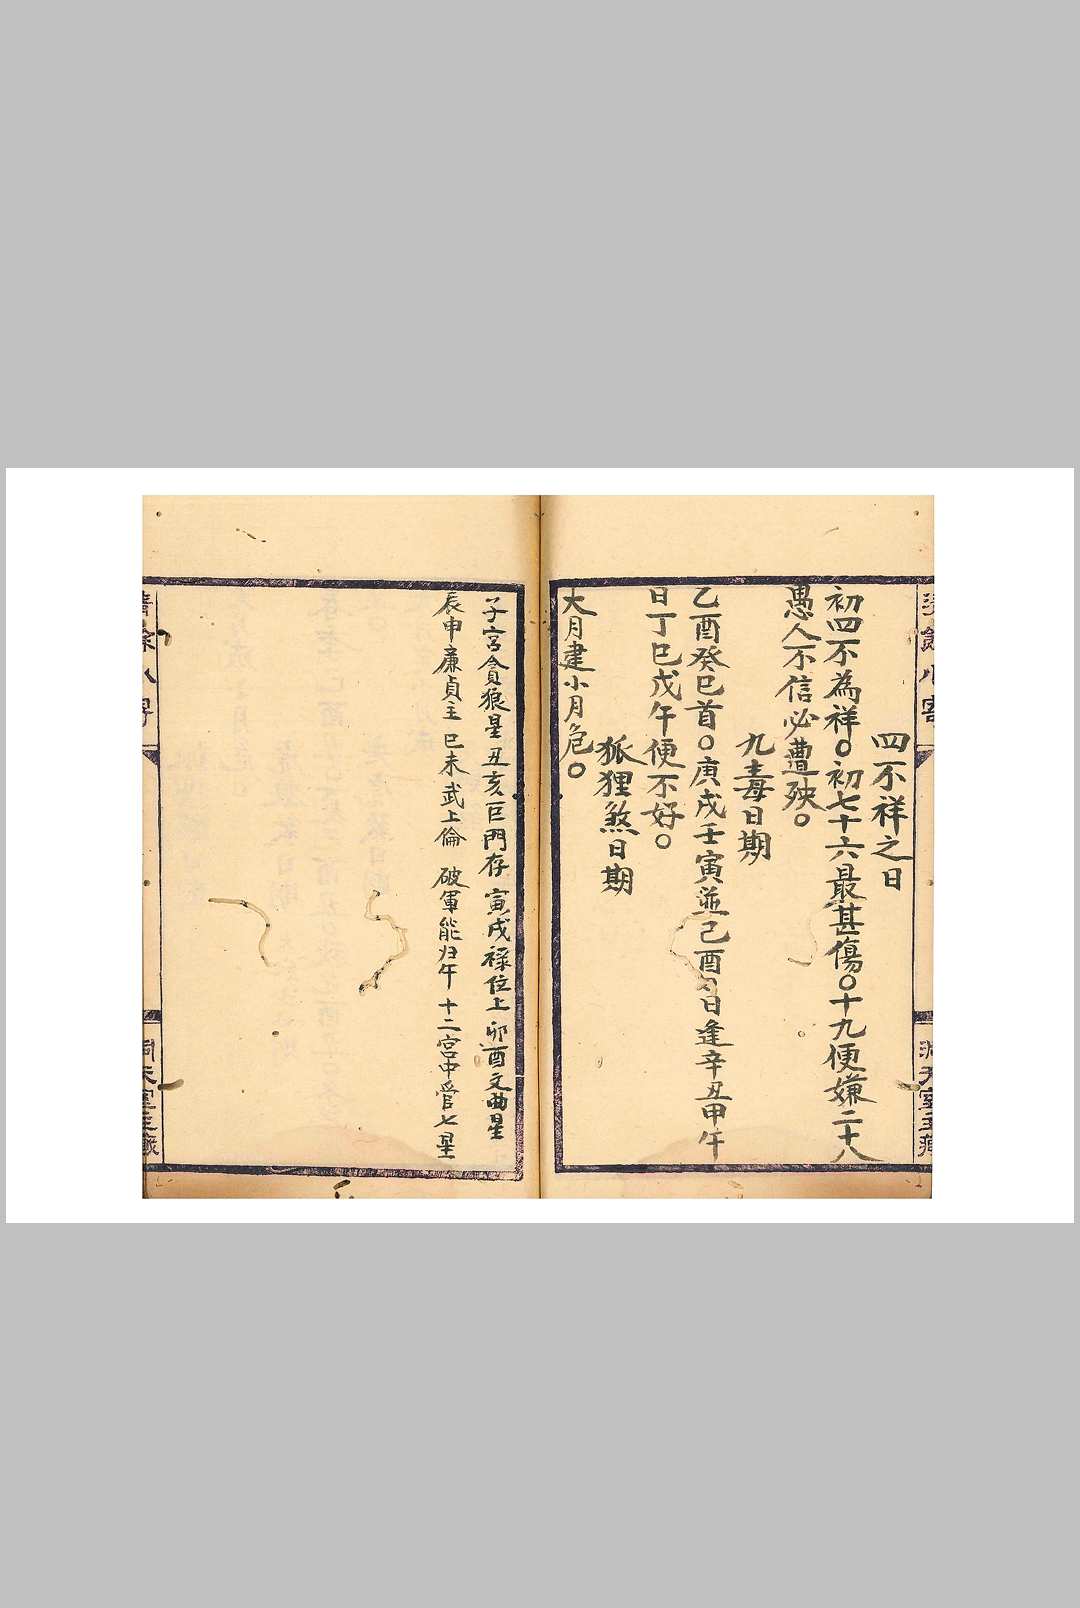 四不祥之日
初四不為祥○初七十六最甚傷○十九便嫌二十八
愚人不信必遭殃○
九毒日期
乙酉癸巳首○庚戌壬寅並己酉○日逢辛丑甲午
日丁巳戊午便不好○
狐狸煞日期
大月建小月危○
子宮貪狼星 丑亥巨門存 寅戌祿位上 卯酉文曲星
辰申廉貞主 巳未武上倫 破軍能归午 十二宮中管七星
洞天室主藏